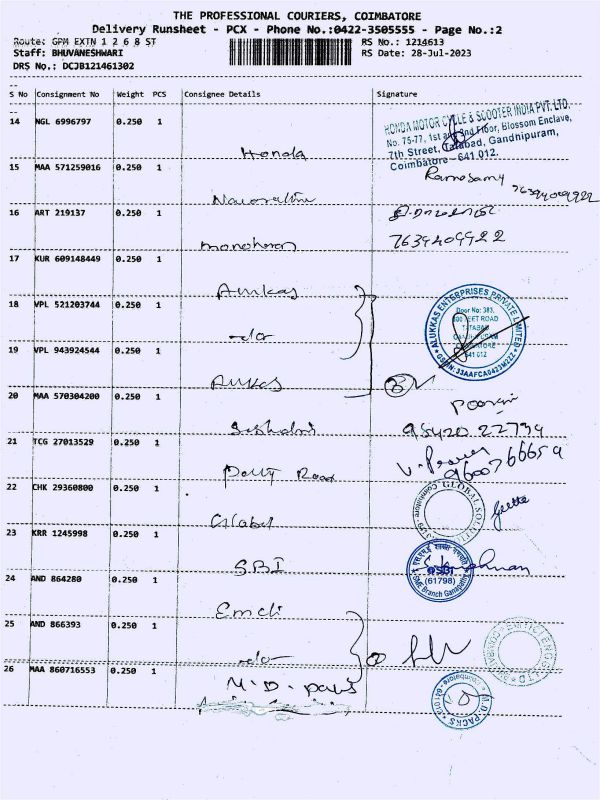 THE PROFESSIONAL COURIERS, COIMBATORE
Delivery Runsheet - PCX - Phone No.:0422-3505555 - Page No.:2
Route: GPM EXTN 1 2 6 8 ST
RS No.: 1214613
Staff: BHUVANESHWARI
RS Date: 28-Jul-2023
DRS No.: DCJB121461302
S No Consignment No Weight PCS Consignee Details Signature
14 NGL 6996797 0.250 1 Honda
HONDA MOTOR CYCLE & SCOOTER INDIA PVT. LTD.
No. 75-77, 1st and 2nd Floor, Blossom Enclave,
7th Street, Tatabad, Gandhipuram,
Coimbatore - 641 012.
15 MAA 571259016 0.250 1
Ramasamy
16 ART 219137 0.250 1 manoharan
7639409922
17 KUR 609148449 0.250 1
18 VPL 521203744 0.250 1 -do-
ALUKKAS ENTERPRISES PRIVATE LIMITED
Door No: 383,
TATABAD
641 012
GSTIN: 33AAFCA0423M2ZZ
19 VPL 943924544 0.250 1
20 MAA 570304200 0.250 1
95420 22794
21 TCG 27013529 0.250 1 Road
9600766659
22 CHK 29360800 0.250 1 Global
GLOBAL
Geetha
23 KRR 1245998 0.250 1 SBI
SBI
(61798)
SME Branch Ganapathy
24 AND 864280 0.250 1
25 AND 866393 0.250 1 -do-
26 MAA 860716553 0.250 1 M.D. packs
M.D. PACKS